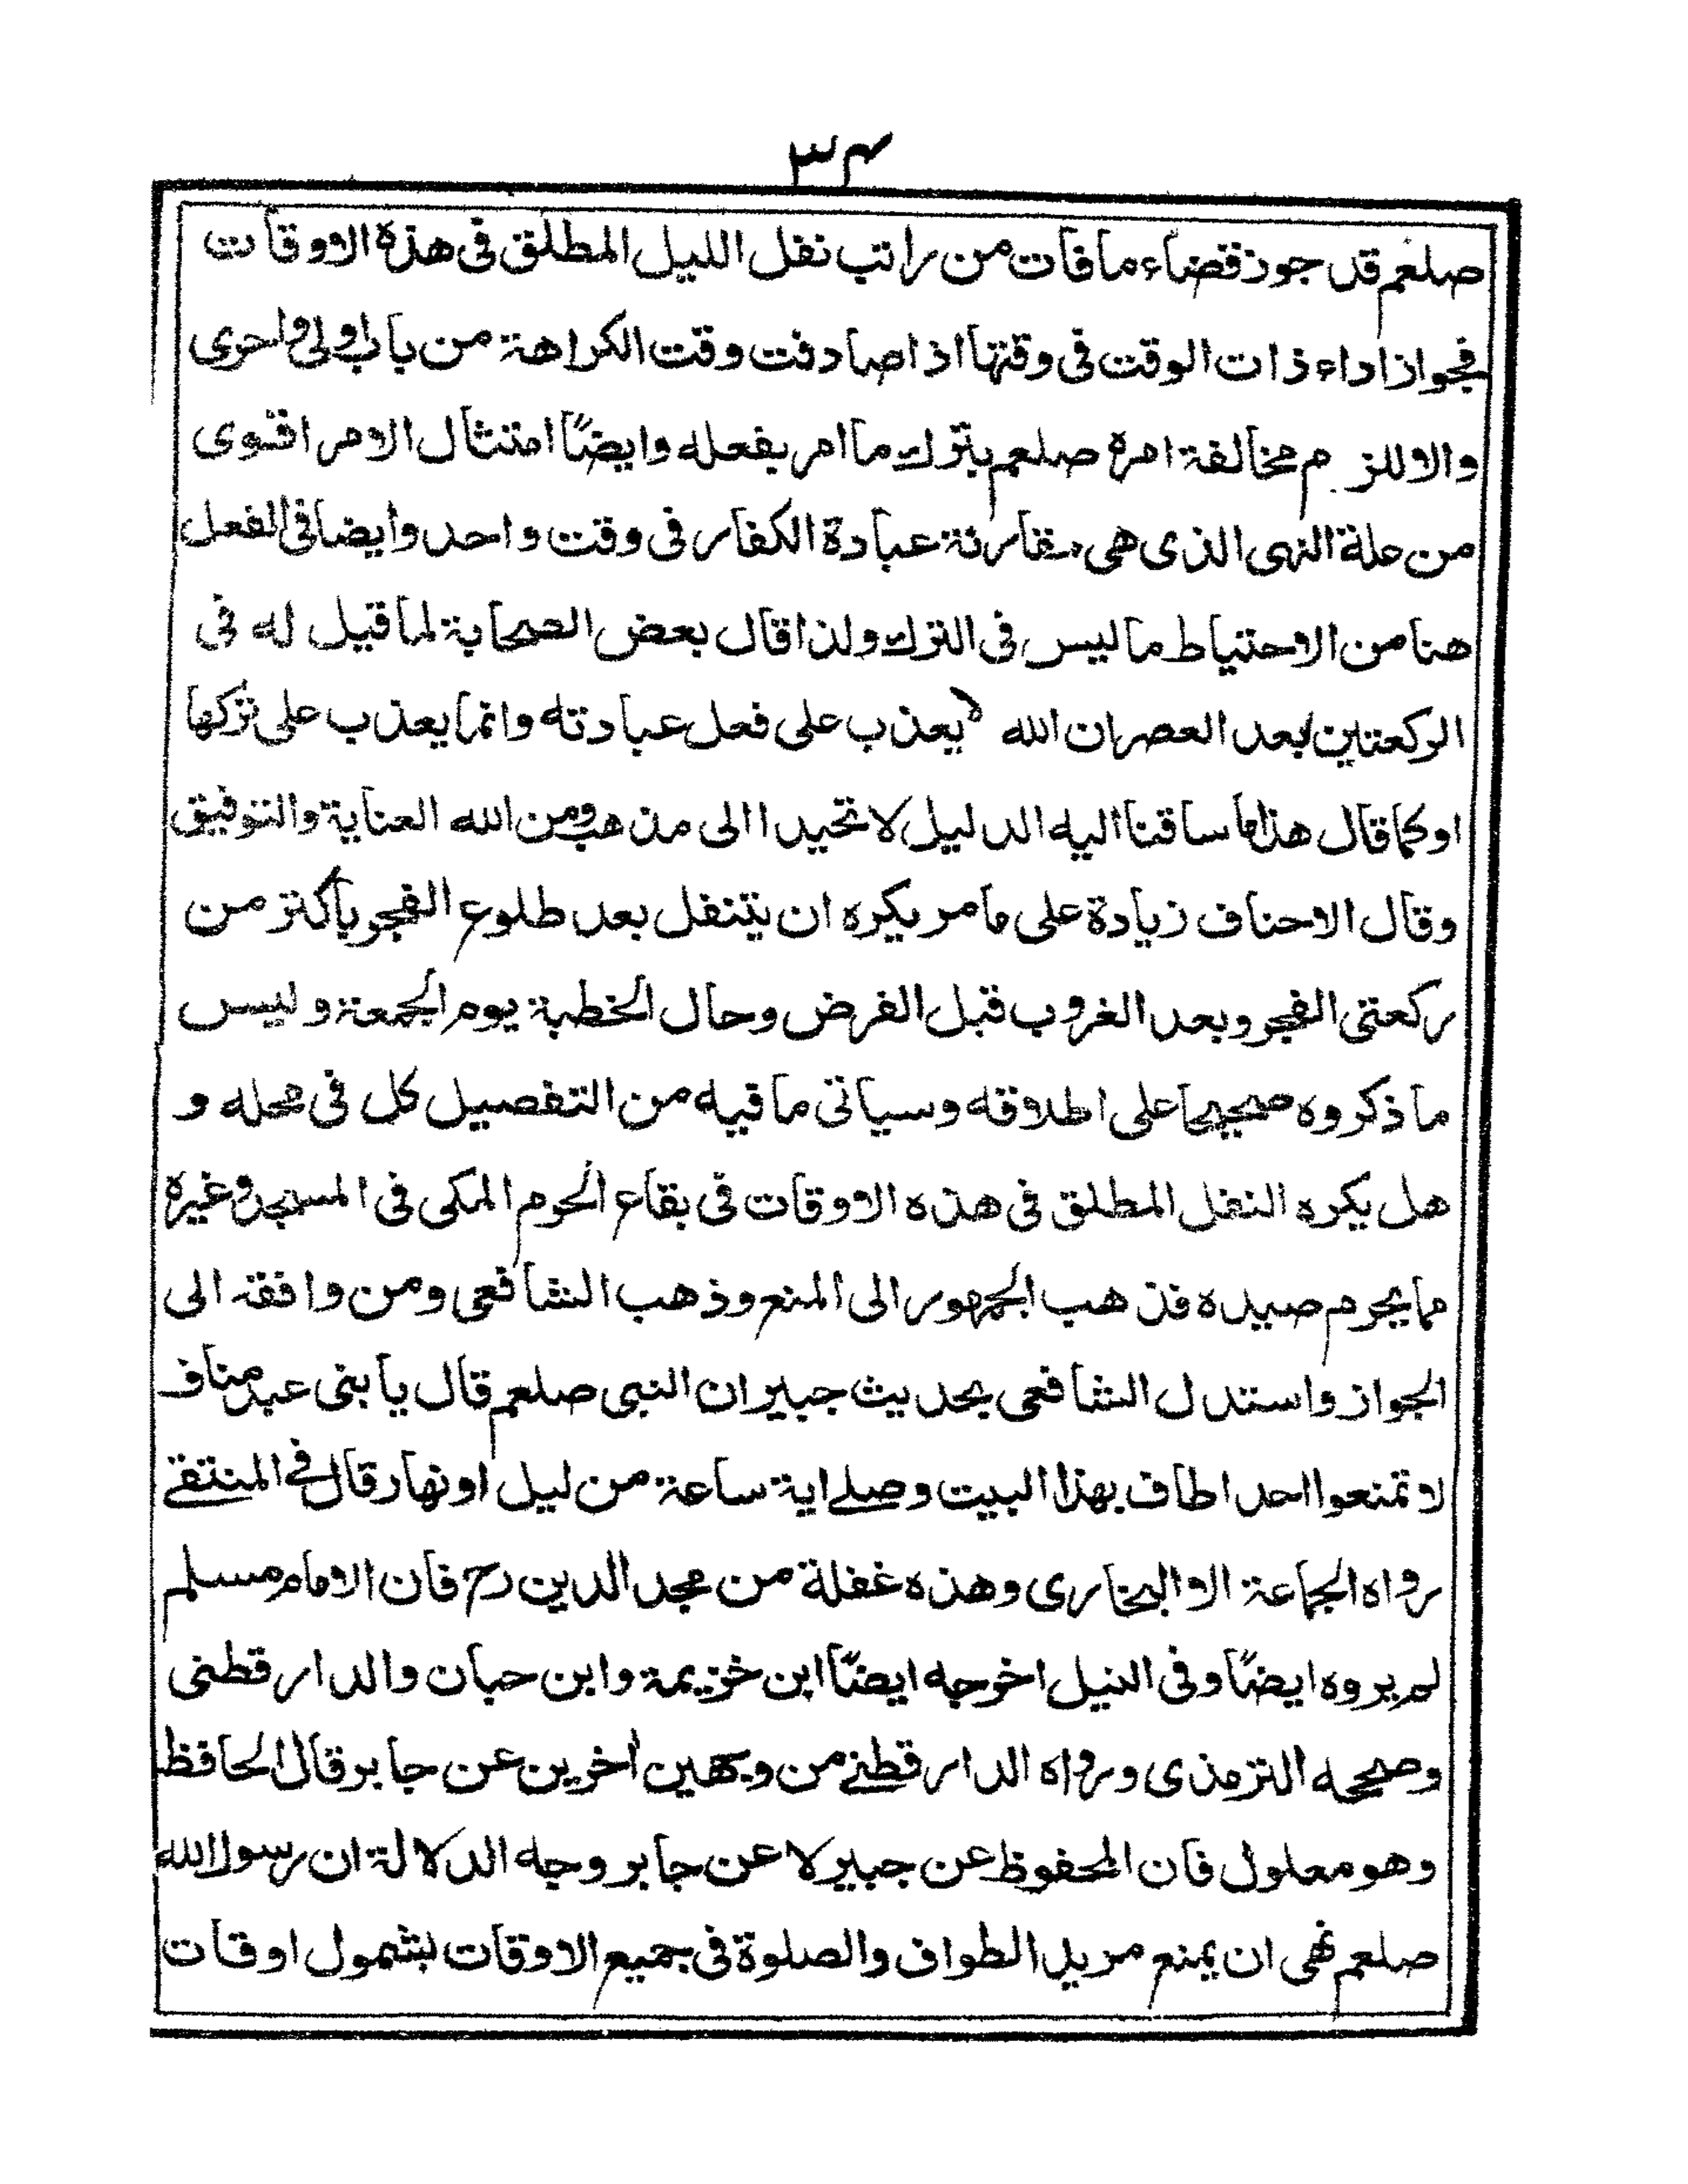 ٣٤
صلعم قد جوز قضاء ما فات من راتب نفل الليل المطلق فى هذه الاوقات
فجواز اداء ذات الوقت فى وقتها اذا صادفت وقت الكراهة من باب اولى واحرى
والا للزم مخالفة امره صلعم بترك ما امر بفعله وايضاً امتثال الامر اقوى
من علة النهى الذى هى مقارنة عبادة الكفار فى وقت واحد وايضا فى الفعل
هنا من الاحتياط ما ليس فى الترك ولذا قال بعض الصحابة لما قيل له فى
الركعتين بعد العصر ان الله لا يعذب على فعل عبادته وانما يعذب على تركها
او كما قال هذا ما ساقنا اليه الدليل لا تحيدا الى مذهب ومن الله العناية والتوفيق
وقال الاحناف زيادة على ما مر يكره ان يتنفل بعد طلوع الفجر باكثر من
ركعتى الفجر وبعد الغروب قبل الفرض وحال الخطبة يوم الجمعة وليس
ما ذكروه صحيحا على اطلاقه وسياتى ما فيه من التفصيل كل فى محله و
هل يكره النفل المطلق فى هذه الاوقات فى بقاع الحرم المكى فى المسجد وغيره
مما يحرم صيده فذهب الجمهور الى المنع وذهب الشافعى ومن وافقه الى
الجواز واستدل الشافعى بحديث جبير ان النبى صلعم قال يا بنى عبد مناف
لا تمنعوا احدا طاف بهذا البيت وصلے اية ساعة من ليل او نهار قال فے المنتقے
رواه الجماعة الا البخارى وهذه غفلة من مجد الدين رح فان الامام مسلم
لم يروه ايضاً وفى النيل اخرجه ايضاً ابن خزيمة وابن حبان والدارقطنى
وصححه الترمذى ورواه الدارقطنے من وجهين اخرين عن جابر قال الحافظ
وهو معلول فان المحفوظ عن جبير لا عن جابر وجه الدلالة ان رسول الله
صلعم نهى ان يمنع مريد الطواف والصلوة فى جميع الاوقات بشمول اوقات